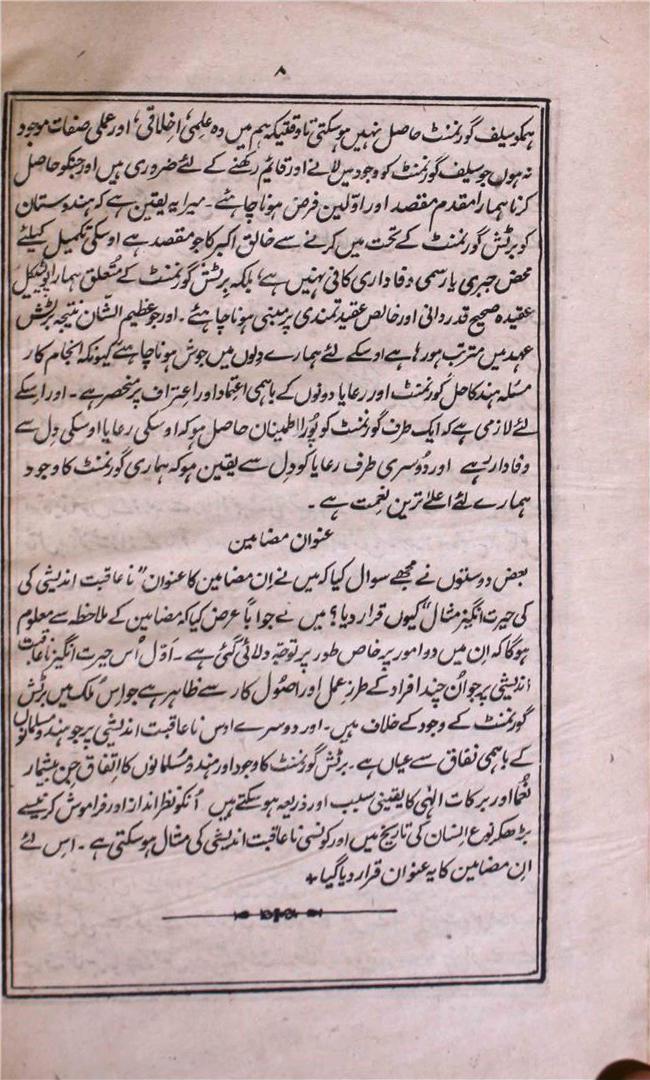 ۸
ہمکو سیلف گورنمنٹ حاصل نہیں ہوسکتی تاوقتیکہ ہم میں وہ علمی، اخلاقی، اور عملی صفات موجود
نہ ہوں جو سیلف گورنمنٹ کو وجود میں لانے اور قایم رکھنے کے لئے ضروری ہیں اور جنکو حاصل
کرنا ہمارا مقدم مقصد اور اوّلین فرض ہونا چاہئے ۔ میرا یہ یقین ہے کہ ہندوستان
کو برٹش گورنمنٹ کے تحت میں کرنے سے خالق اکبر کا جو مقصد ہے اوسکی تکمیل کیلئے
محض جبری یا رسمی وفاداری کافی نہیں ہے، بلکہ برٹش گورنمنٹ کے متعلق ہمارا پولیٹیکل
عقیدہ صحیح قدردانی اور خالص عقیدتمندی پر مبنی ہونا چاہئے ۔ اور جو عظیم الشّان نتیجہ برٹش
عہد میں مترتب ہو رہا ہے اوسکے لئے ہمارے دلوں میں جوش ہونا چاہئے کیونکہ انجام کار
مسئلہ ہند کا حل گورنمنٹ اور رعایا دونوں کے باہمی اعتماد اور اعتراف پر منحصر ہے ۔ اور اسکے
لئے لازمی ہے کہ ایک طرف گورنمنٹ کو پورا اطمینان حاصل ہو کہ اوسکی رعایا اوسکی دل سے
وفادار ہے اور دوسری طرف رعایا کو دل سے یقین ہو کہ ہماری گورنمنٹ کا وجود
ہمارے لئے اعلےٰ ترین نعمت ہے ۔
عنوان مضامین
بعض دوستوں نے مجھسے سوال کیا کہ میں نے ان مضامین کا عنوان "ناعاقبت اندیشی کی
کی حیرت انگیز مثال" کیوں قرار دیا؟ میں نے جواباً عرض کیا کہ مضامین کے ملاحظہ سے معلوم
ہوگا کہ ان میں دو امور پر خاص طور پر توجہ دلائی گئی ہے ۔ اوّل اُس حیرت انگیز ناعاقبت
اندیشی پر جو اُن چند افراد کے طرز عمل اور اصول کار سے ظاہر ہے جو اس ملک میں برٹش
گورنمنٹ کے وجود کے خلاف ہیں ۔ اور دوسرے اوس ناعاقبت اندیشی پر جو ہند و مسلمانوں
کے باہمی نفاق سے عیاں ہے ۔ برٹش گورنمنٹ کا وجود اور ہند و مسلمانوں کا اتفاق جن بیشمار
نعما اور برکات الٰہی کا یقینی سبب اور ذریعہ ہو سکتے ہیں اُنکو نظر انداز اور فراموش کرنیسے
بڑھکر نوع انسان کی تاریخ میں اور کونسی ناعاقبت اندیشی کی مثال ہو سکتی ہے ۔ اس لئے
ان مضامین کا یہ عنوان قرار دیا گیا +